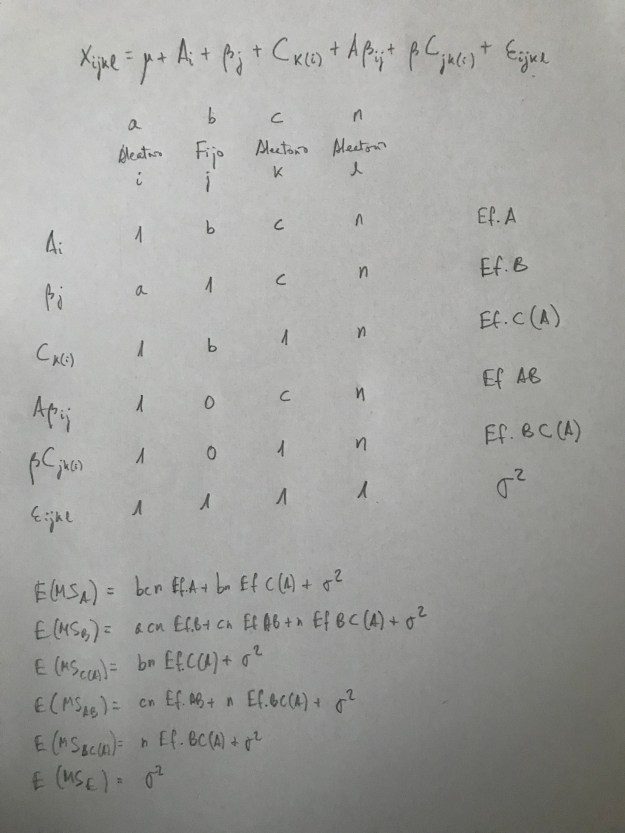 Xijkl = μ + Ai + βj + Ck(i) + Aβij + βCjk(i) + εijkl
a b c n
Aleatorio Fijo Aleatorio Aleatorio
i j k l
Ai 1 b c n Ef. A
βj a 1 c n Ef. B
Ck(i) 1 b 1 n Ef. C(A)
Aβij 1 0 c n Ef AB
βCjk(i) 1 0 1 n Ef. BC(A)
εijkl 1 1 1 1 σ²
E(MSA) = bcn Ef.A + bn Ef C(A) + σ²
E(MSB) = acn Ef.B + cn Ef AB + n Ef BC(A) + σ²
E(MSC(A)) = bn Ef.C(A) + σ²
E(MSAB) = cn Ef.AB + n Ef.BC(A) + σ²
E(MSBC(A)) = n Ef.BC(A) + σ²
E(MSE) = σ²